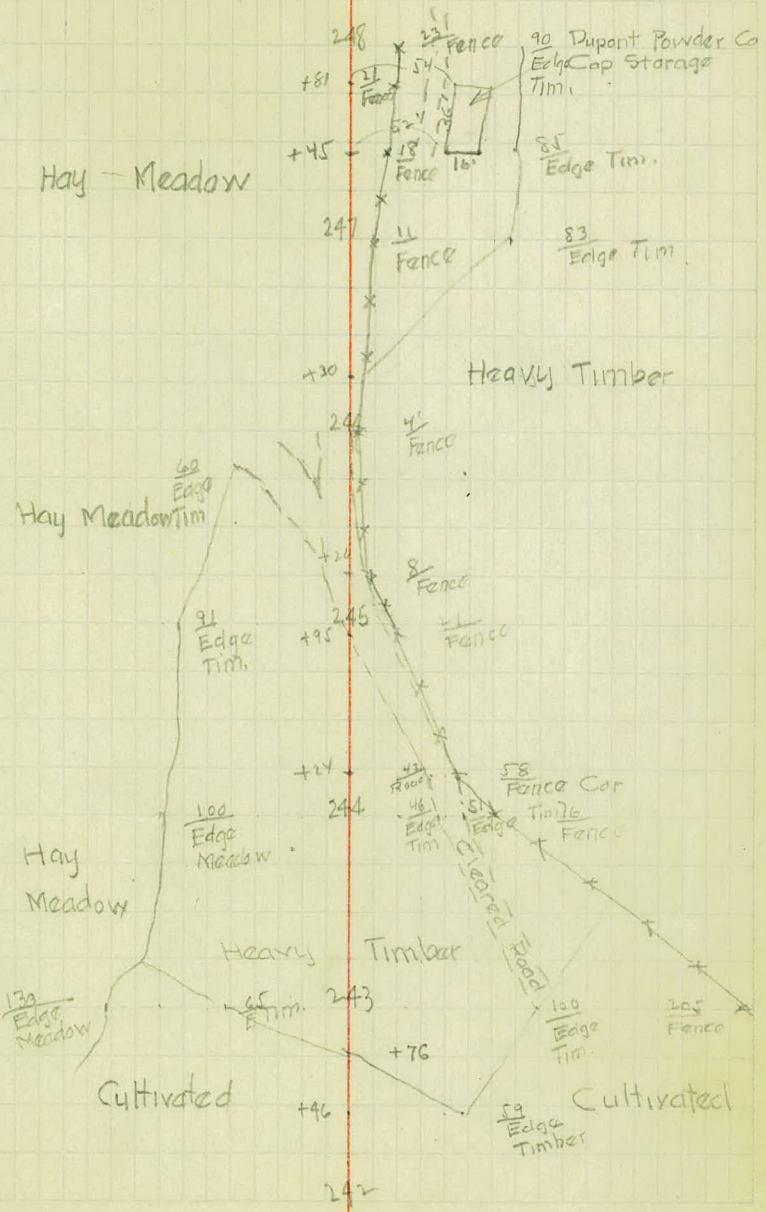 248
23
Fence
90
Dupont Powder Co
Edge Cap Storage
Tim.
+81
21
Fence
54'
36'
52'
+45
18
Fence
16'
85
Edge Tim.
Hay Meadow
247
11
Fence
83
Edge Tim.
+30
Heavy Timber
246
4'
Fence
60
Edge
Hay Meadow Tim
8
Fence
245
91
Edge
Tim.
+95
21
Fence
+24
42
Road
58
Fence Cor
244
100
Edge
Meadow
46.1
Edge
Tim
51
Edge Tim
76
Fence
Hay
Meadow
Cleared Road
Heavy Timber
139
Edge
Meadow
65
E Tim.
243
100
Edge
Tim.
205
Fence
+76
Cultivated
+46
59
Edge
Timber
Cultivated
242